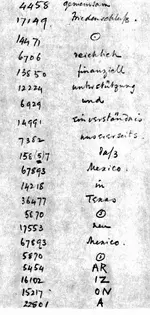 4458 gemeinsam
17149 Friedenschluß.
14471 ⊙
6706 reichlich
13850 finanziell
12224 unterstützung
6929 und
14991 einverständnis
7382 unsererseits.
158(5)7 daß
67893 Mexico.
14218 in
36477 Texas
5670 ⊙
17553 neu
67693 Mexico.
5870 ⊙
5454 AR
16102 IZ
15217 ON
22801 A